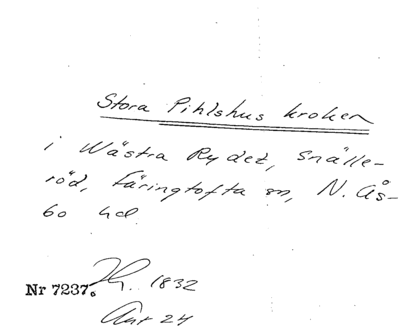 Stora Pihlshus kroken
i Wästra Rydet, Snälle-
röd, Färingtofta sn, N. Ås-
bo hd.
Nr 7237. 1832
24